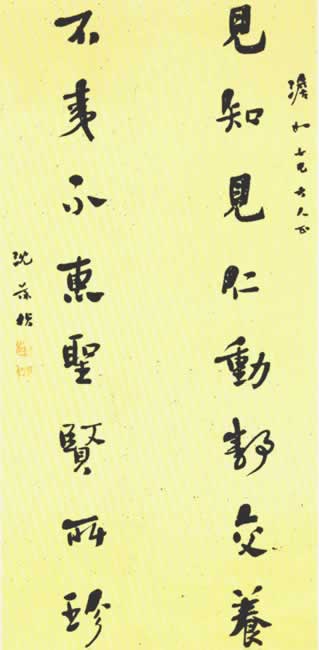 澹如七兄大人正
見知見仁動靜交養
不夷不惠聖賢所珍
沈葆楨